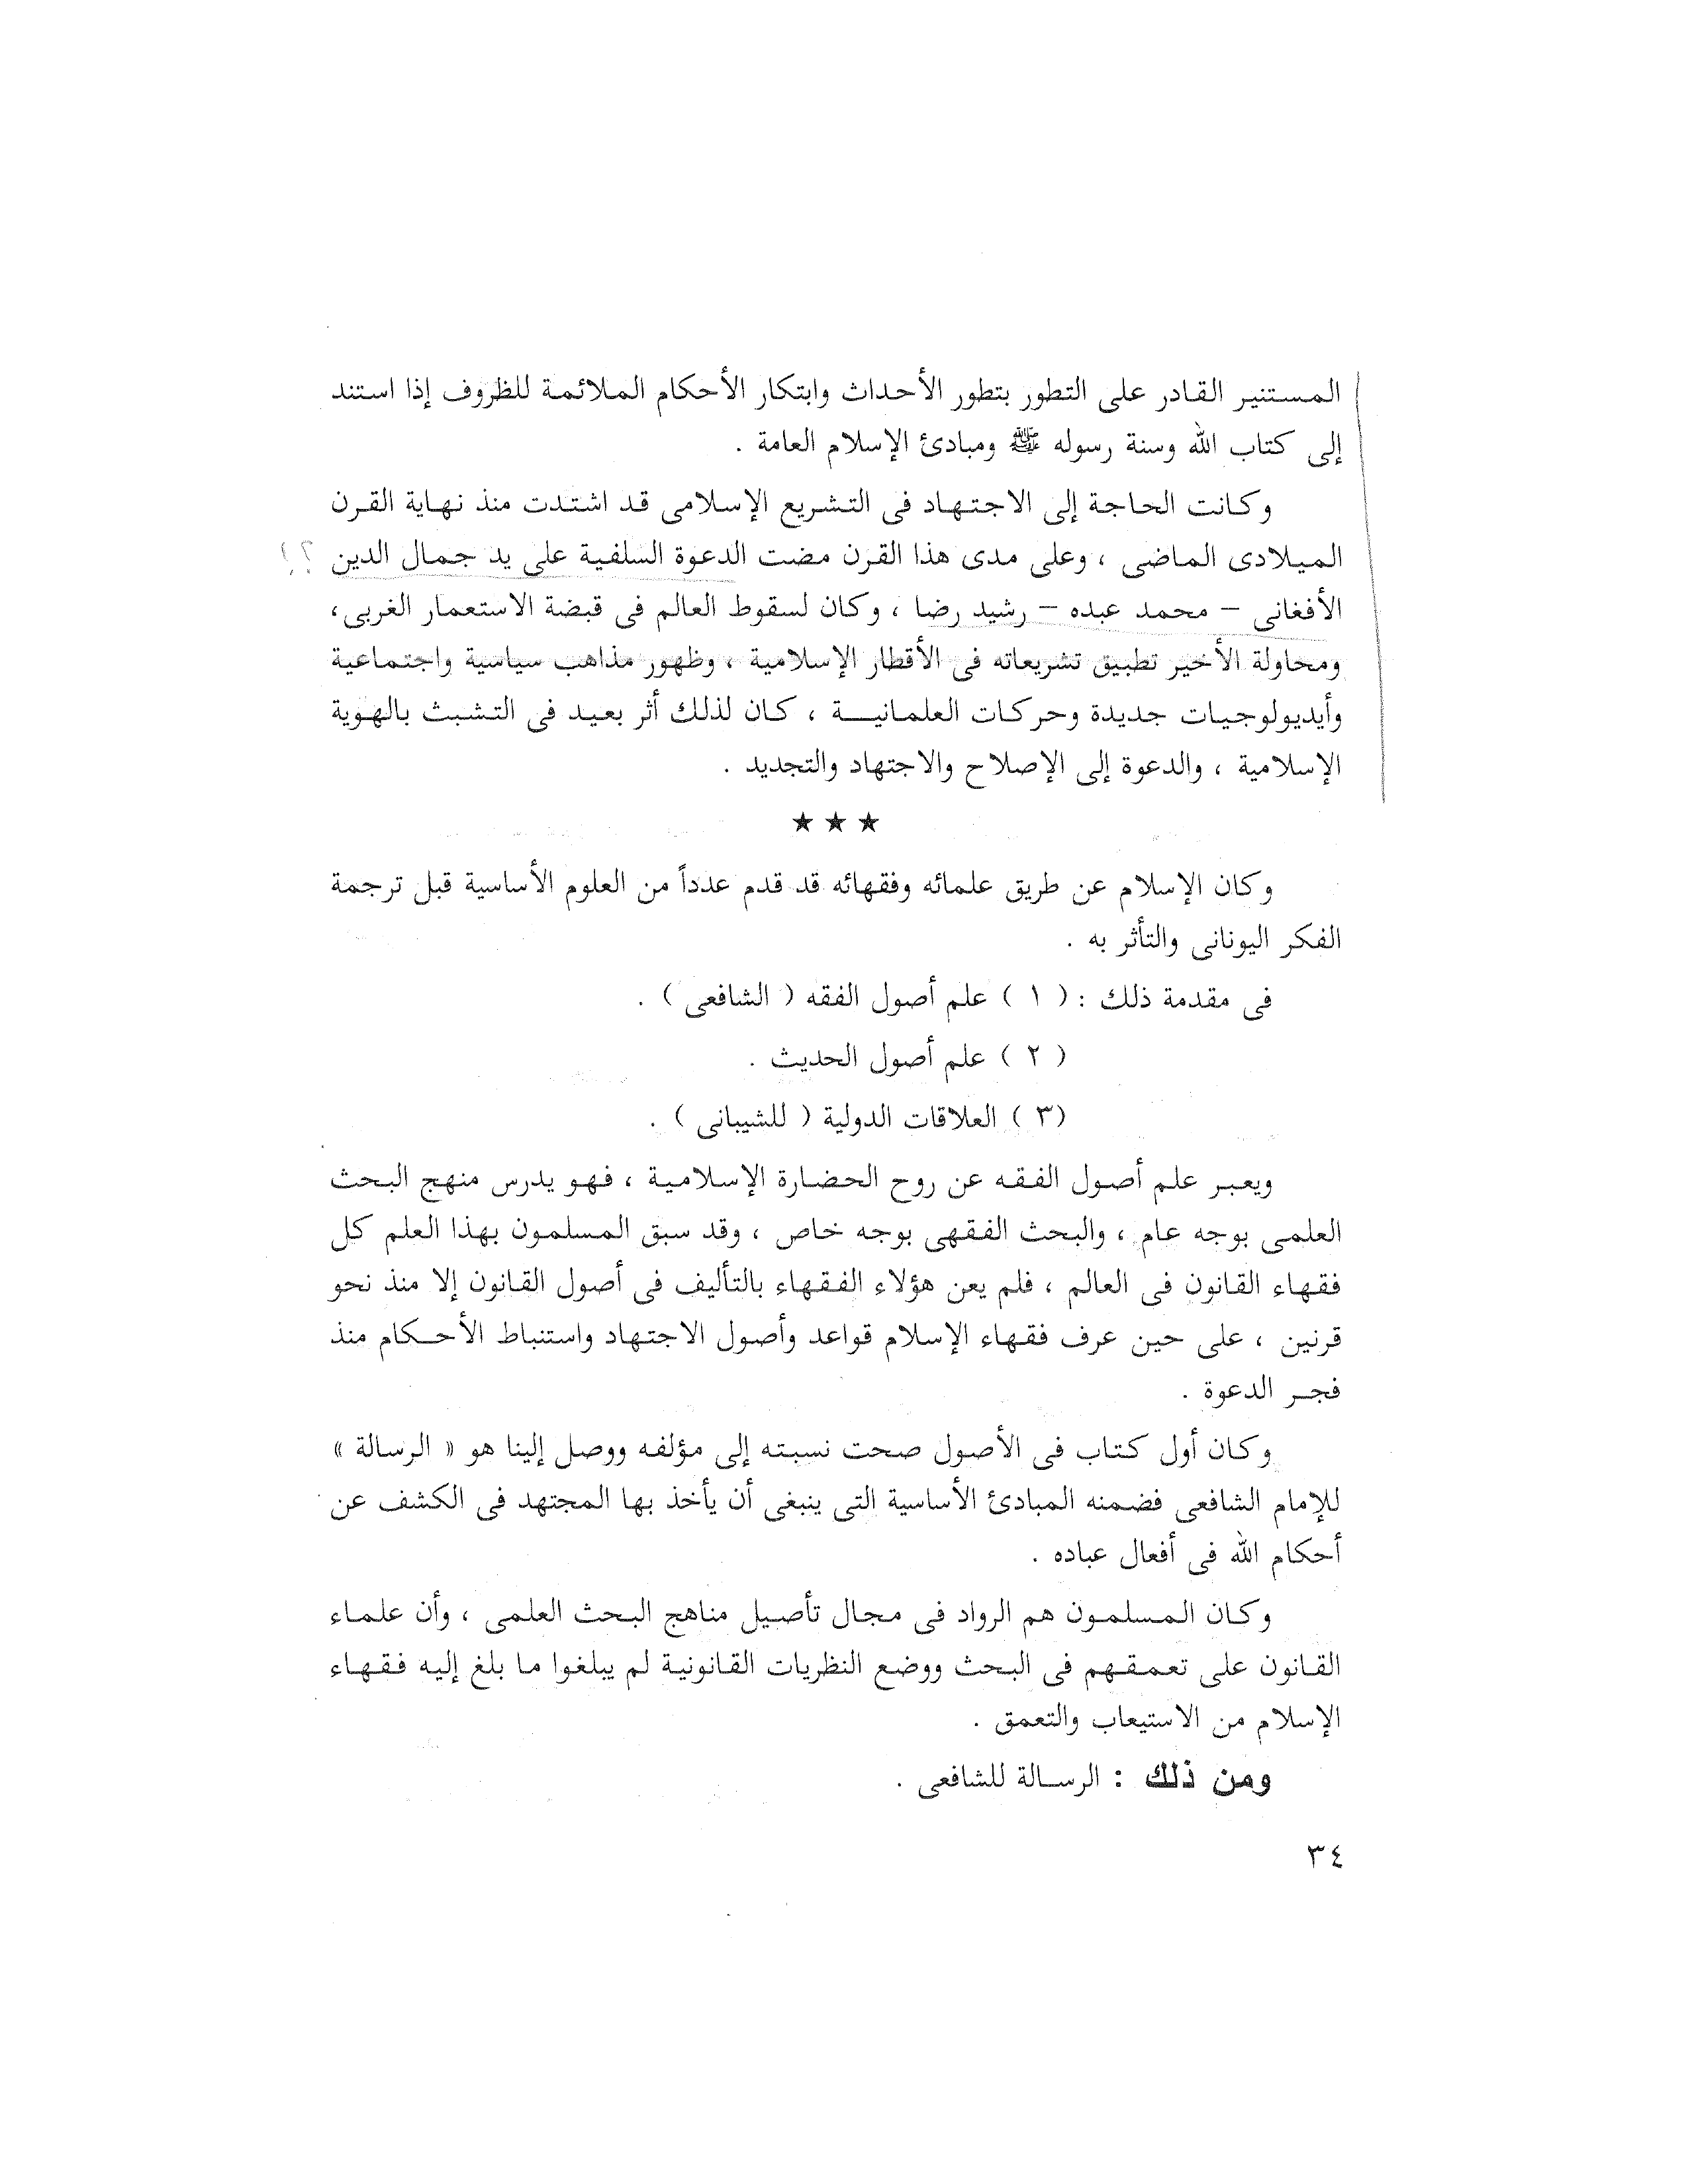 المستنير القادر على التطور بتطور الأحداث وابتكار الأحكام الملائمة للظروف إذا استند
إلى كتاب الله وسنة رسوله ﷺ ومبادئ الإسلام العامة .
وكانت الحاجة إلى الاجتهاد فى التشريع الإسلامى قد اشتدت منذ نهاية القرن
الميلادى الماضى ، وعلى مدى هذا القرن مضت الدعوة السلفية على يد جمال الدين ؟!
الأفغانى – محمد عبده – رشيد رضا ، وكان لسقوط العالم فى قبضة الاستعمار الغربى ،
ومحاولة الأخير تطبيق تشريعاته فى الأقطار الإسلامية ، وظهور مذاهب سياسية واجتماعية
وأيديولوجيات جديدة وحركات العلمانيــة ، كان لذلك أثر بعيد فى التشبث بالهوية
الإسلامية ، والدعوة إلى الإصلاح والاجتهاد والتجديد .
★ ★ ★
وكان الإسلام عن طريق علمائه وفقهائه قد قدم عدداً من العلوم الأساسية قبل ترجمة
الفكر اليونانى والتأثر به .
فى مقدمة ذلك : ( ١ ) علم أصول الفقه ( الشافعى ) .
( ٢ ) علم أصول الحديث .
(٣ ) العلاقات الدولية ( للشيبانى ) .
ويعبر علم أصول الفقه عن روح الحضارة الإسلامية ، فهو يدرس منهج البحث
العلمى بوجه عام ، والبحث الفقهى بوجه خاص ، وقد سبق المسلمون بهذا العلم كل
فقهاء القانون فى العالم ، فلم يعن هؤلاء الفقهاء بالتأليف فى أصول القانون إلا منذ نحو
قرنين ، على حين عرف فقهاء الإسلام قواعد وأصول الاجتهاد واستنباط الأحكام منذ
فجر الدعوة .
وكان أول كتاب فى الأصول صحت نسبته إلى مؤلفه ووصل إلينا هو « الرسالة »
للإمام الشافعى فضمنه المبادئ الأساسية التى ينبغى أن يأخذ بها المجتهد فى الكشف عن
أحكام الله فى أفعال عباده .
وكان المسلمون هم الرواد فى مجال تأصيل مناهج البحث العلمى ، وأن علماء
القانون على تعمقهم فى البحث ووضع النظريات القانونية لم يبلغوا ما بلغ إليه فقهاء
الإسلام من الاستيعاب والتعمق .
ومن ذلك : الرسالة للشافعى .
٣٤